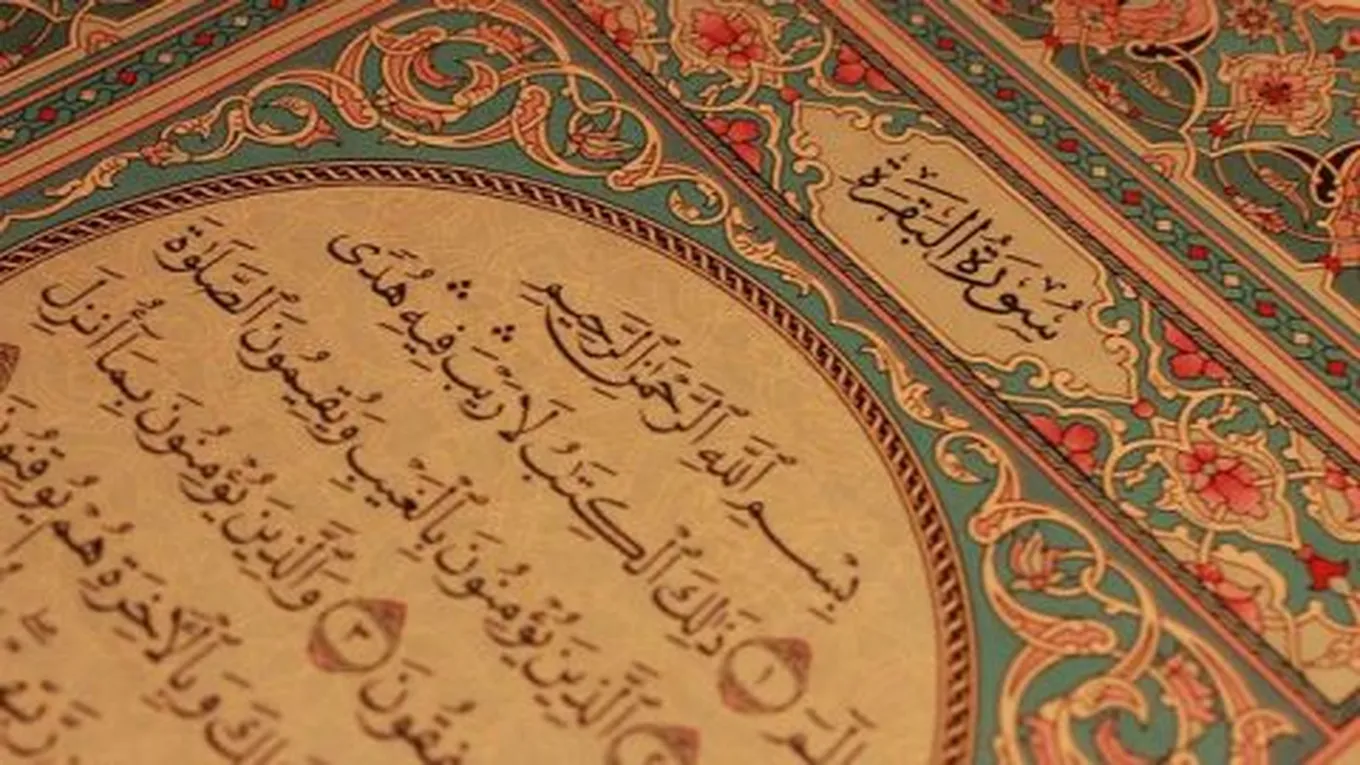 سُورَةُ البَقَرَةِ
بِسْمِ ٱللَّهِ ٱلرَّحْمَٰنِ ٱلرَّحِيمِ
الٓمٓ ١ ذَٰلِكَ ٱلْكِتَٰبُ لَا رَيْبَ ۛ فِيهِ ۛ هُدًى
٢ ٱلَّذِينَ يُؤْمِنُونَ بِٱلْغَيْبِ وَيُقِيمُونَ ٱلصَّلَوٰةَ
نفِقُونَ ٣ وَٱلَّذِينَ يُؤْمِنُونَ بِمَآ أُنزِلَ
لِكَ وَبِٱلْأَخِرَةِ هُمْ يُوقِنُونَ